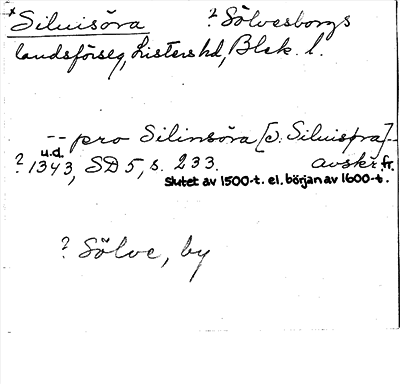 *Siluisöra ? Sölvesborgs
landsförsg, Listers hd, Blek. l.
-- pro Silinsöra [ɔ: Siluisøra] --
? 1343, u.d. SD 5, s. 233. avskr. fr.
slutet av 1500-t. el. början av 1600-t.
? Sölve, by